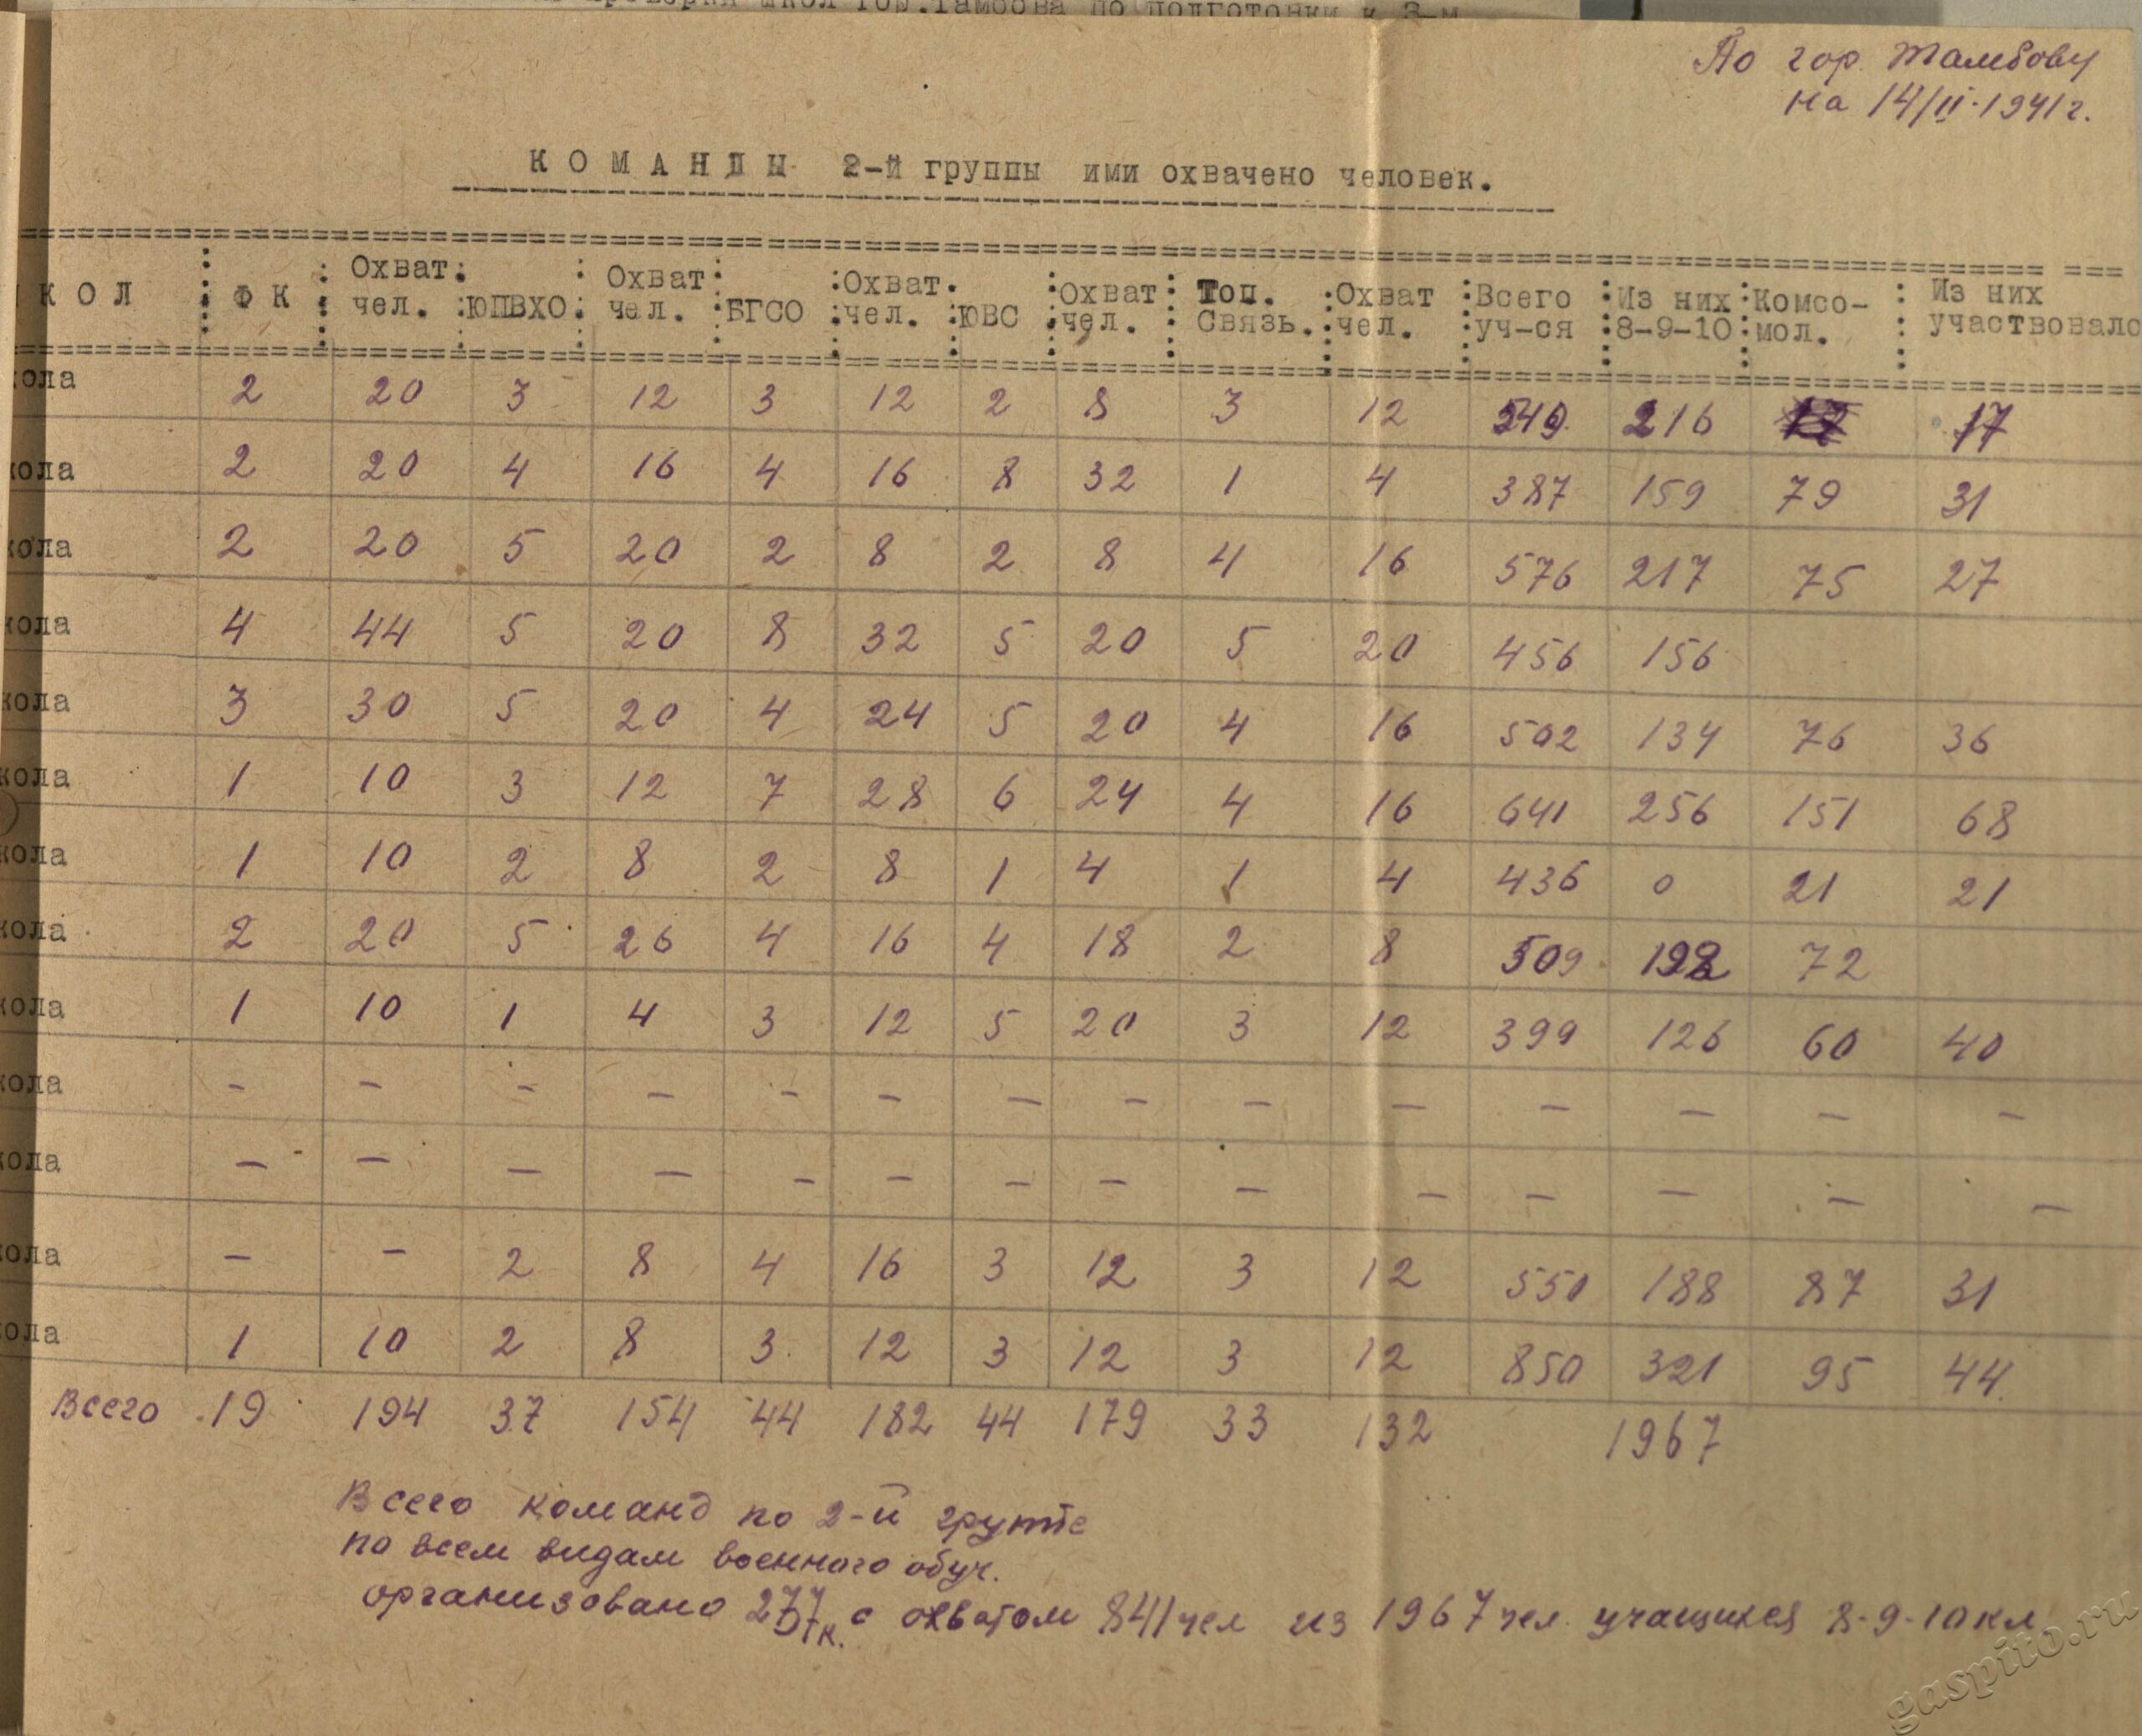 проверки школ гор.Тамбова по подготовки к 3-м
По гор. Тамбову
на 14/II-1941г.
КОМАНДЫ 2-й группы ими охвачено человек.
КОЛ : ФК : Охват. чел. : ЮПВХО : Охват чел. : БГСО : Охват. чел. : ЮВС : Охват чел. : Топ. Связь. : Охват чел. : Всего уч-ся : Из них 8-9-10 : Комсо-мол. : Из них участвовало
кола 2 20 3 12 3 12 2 8 3 12 549 216 17
кола 2 20 4 16 4 16 8 32 1 4 387 159 79 31
кола 2 20 5 20 2 8 2 8 4 16 576 217 75 27
кола 4 44 5 20 8 32 5 20 5 20 456 156
кола 3 30 5 20 4 24 5 20 4 16 502 134 76 36
кола 1 10 3 12 7 28 6 24 4 16 641 256 151 68
кола 1 10 2 8 2 8 1 4 1 4 436 0 21 21
кола 2 20 5 26 4 16 4 18 2 8 509 192 72
кола 1 10 1 4 3 12 5 20 3 12 399 126 60 40
кола - - - - - - - - - - - - - -
кола - - - - - - - - - - - - - -
кола - - 2 8 4 16 3 12 3 12 550 188 87 31
кола 1 10 2 8 3 12 3 12 3 12 850 321 95 44
Всего 19 194 37 154 44 182 44 179 33 132 1967
Всего команд по 2-й группе
по всем видам военного обуч.
организовано 277 к. с охватом 841 чел из 1967 чел. учащихся 8-9-10 кл
gaspito.ru